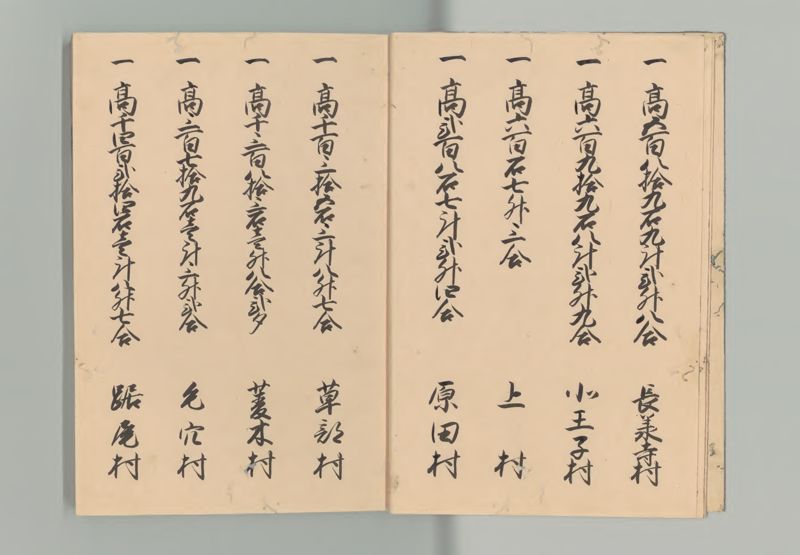 一 高六百八拾九石九斗弐升八合 長承寺村
一 高六百九拾九石八斗弐升九合 小王子村
一 高六百石七升三合 上村
一 高弐百八石七斗弐升四合 原田村
一 高千百三拾六石三斗八升七合 草部村
一 高千三百八拾三石壱升八合弐夕 菱木村
一 高三百七拾九石壱斗三升弐合 毛穴村
一 高千四百弐拾四石壱斗八升七合 踞尾村